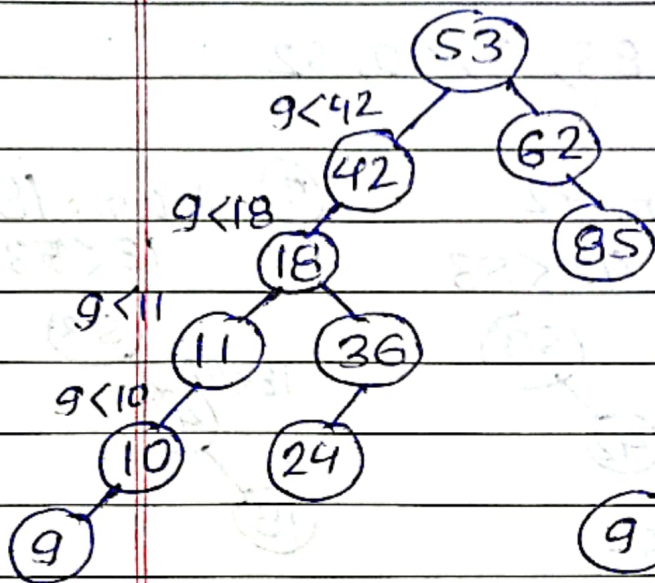 53
9<42
42
62
9<18
18
85
9<11
11
36
9<10
10
24
9
9